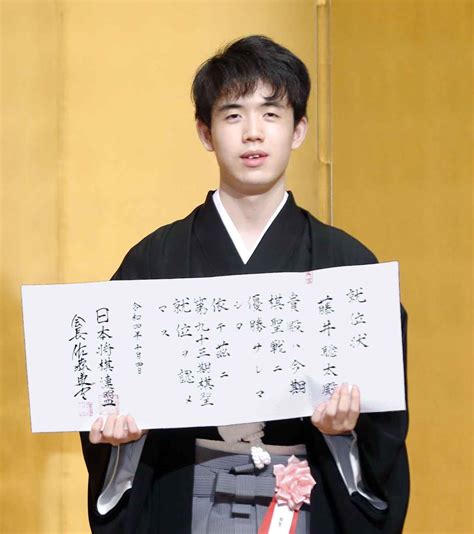 就位状
藤井聡太殿
貴殿ハ今期
棋聖戦ニ
優勝サレマ
シタ
依テ茲ニ
第九十三期棋聖
就位ヲ認メ
マス
令和四年
日本将棋連盟
会長佐藤康光